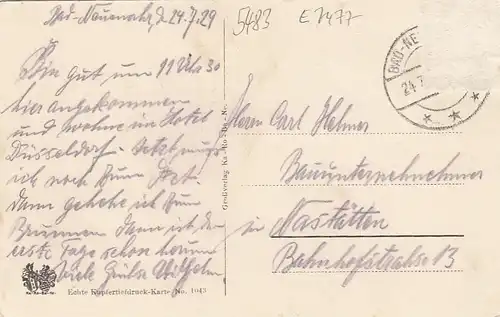 Bad-Neuenahr, d. 24.7.29
Bin gut um 11 Uhr 30
hier angekommen
und wohne im Hotel
Düsseldorf. Jetzt muss
ich noch zum Arzt.
Dann gehe ich zum
Brunnen. Dann ist, der
erste Tage schon herum
Viele Grüße Wilhelm.
Echte Kupfertiefdruck-Karte No. 1045
Großverlag
5483
E 7477
BAD-NE
24.7
Herrn Carl Helmer
Bauunternehmener
in Nastätten
Bahnhofstrahse 13